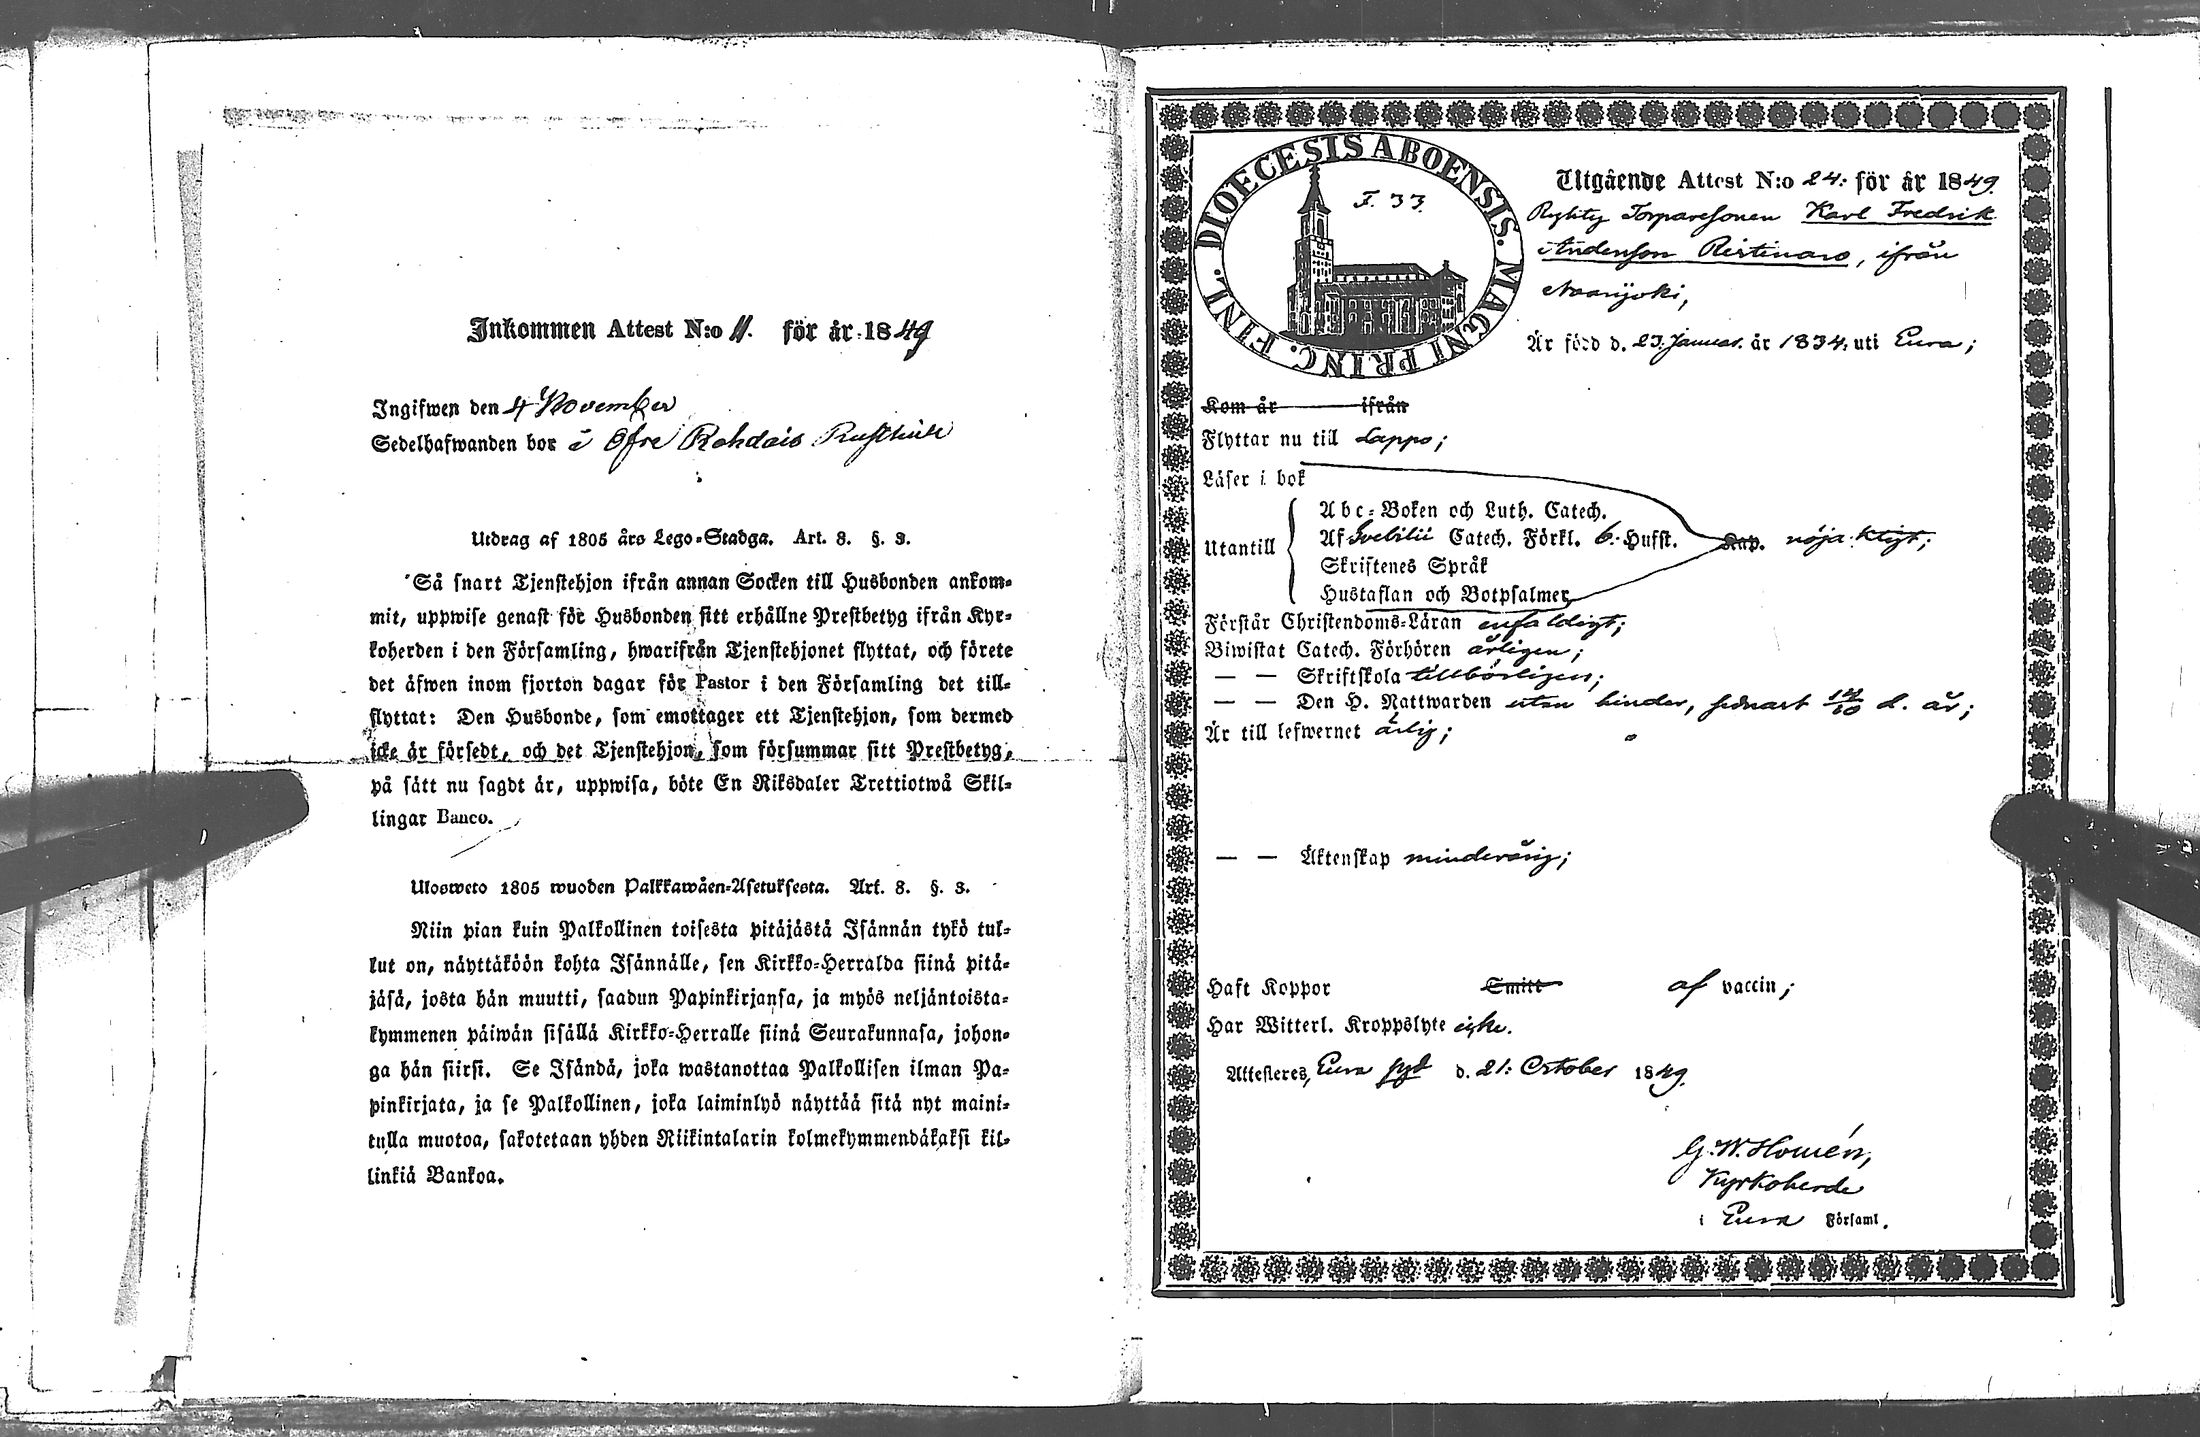 Inkommen Attest N:o 11. för år 1849
Ingifwen den 4 November
Sedelhafwanden bor å Ofre Rohdais Rusthåll
Utdrag af 1805 års Lego-Stadga. Art. 8. §. 3.
Så snart Tjenstehjon ifrån annan Socken till Husbonden ankom-
mit, uppwise genast för Husbonden sitt erhållne Prestbetyg ifrån Kyr-
koherden i den Församling, hwarifrån Tjenstehjonet flyttat, och förete
det äfwen inom fjorton dagar för Pastor i den Församling det till-
flyttat: Den Husbonde, som emottager ett Tjenstehjon, som dermed
icke är försedt, och det Tjenstehjon, som försummar sitt Prestbetyg,
på sätt nu sagdt är, uppwisa, böte En Riksdaler Trettiotwå Skil-
lingar Banco.
Ulosweto 1805 wuoden Palkkawäen-Asetuksesta. Art. 8. §. 3.
Niin pian kuin Palkollinen toisesta pitäjästä Isännän tykö tul-
lut on, näyttäköön kohta Isännälle, sen Kirkko-Herralda siinä pitä-
jäsä, josta hän muutti, saadun Papinkirjansa, ja myös neljäntoista-
kymmenen päiwän sisällä Kirkko-Herralle siinä Seurakunnasa, johon-
ga hän siirsi. Se Isändä, joka wastanottaa Palkollisen ilman Pa-
pinkirjata, ja se Palkollinen, joka laiminlyö näyttää sitä nyt maini-
tulla muotoa, sakotetaan yhden Riikintalarin kolmekymmendäkaksi kil-
linkiä Bankoa.
DIOECESIS ABOENSIS. MAGNI PRINC. FINL.
F. 33.
Utgående Attest N:o 24: för år 1849.
Torparesonen Karl Fredrik
Andersson Ristinaro, ifrån
Naarijoki,
Är född d. 23: Januar. år 1834: uti Eura;
Kom år ifrån
Flyttar nu till Lappo;
Läser i bok
Utantill
Abc-Boken och Luth. Catech.
Af Svebilii Catech. Förkl. 6. Hufst. Kap. nöjaktigt;
Skriftenes Språk
Hustaflan och Botpsalmer
Förstår Christendoms-Läran enfaldigt;
Biwistat Catech. Förhören årligen;
— — Skriftskola tillbörligen;
— — Den H. Nattwarden utan hinder, senast 14/10 d. år;
Är till lefwernet ärlig;
— — Äktenskap minderårig;
Haft Koppor Smitt af vaccin;
Har Witterl. Kroppslyte icke.
Attesteres, Eura d. 21: October 1849.
G. W. Homén,
Kyrkoherde
i Eura Församl.